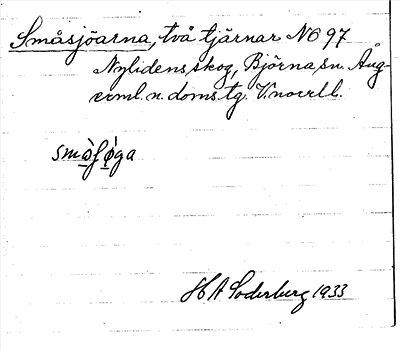 Småsjöarna, två tjärnar N6 97
Nylidens skog, Björna sn. Ång-
erml. n. doms tg. V.norrl l.
H A Soderberg 1933